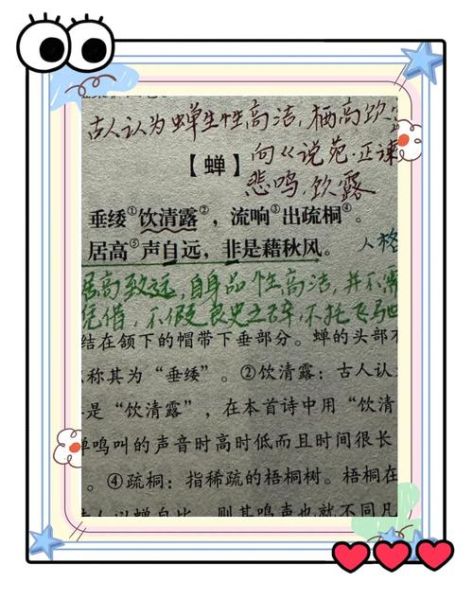 古人认为蝉生性高洁,栖高饮
向《说苑·正谏
【蝉】
悲鸣饮露
垂緌①饮清露②,流响③出疏桐④。
居高⑤声自远,非是藉秋风。
人格
居高致远,自身品性高洁,并不需
凭借,不假良史之辞,不托飞驰
结在颌下的帽带下垂部分。蝉的头部
称其为“垂緌”。②饮清露:古人认
是“饮清露”,在本首诗中用“饮清
鸣叫的声音时高时低而且时间很长
。④疏桐:指稀疏的梧桐树。梧桐在
人以蝉自比,则其鸣声也就不同凡